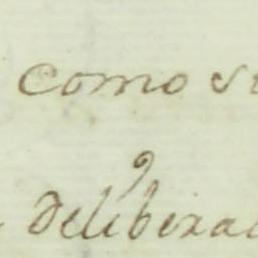 como si
deliberac